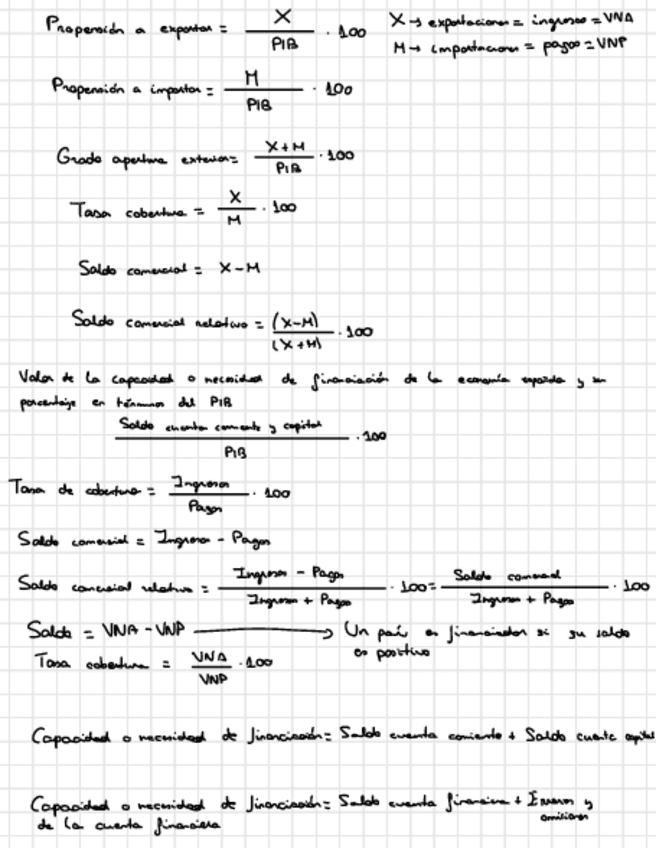 Propensión a exportar = X / PIB · 100
X → exportaciones = ingresos = VNA
M → importaciones = pagos = VNP
Propensión a importar = M / PIB · 100
Grado apertura exterior = X+M / PIB · 100
Tasa cobertura = X / M · 100
Saldo comercial = X-M
Saldo comercial relativo = (X-M) / (X+M) · 100
Valor de la capacidad o necesidad de financiación de la economía española y su
porcentaje en términos del PIB
Saldo cuenta corriente y capital / PIB · 100
Tasa de cobertura = Ingresos / Pagos · 100
Saldo comercial = Ingresos - Pagos
Saldo comercial relativo = Ingresos - Pagos / Ingresos + Pagos · 100 = Saldo comercial / Ingresos + Pagos · 100
Saldo = VNA - VNP → Un país es financiador si su saldo
es positivo
Tasa cobertura = VNA / VNP · 100
Capacidad o necesidad de financiación = Saldo cuenta corriente + Saldo cuenta capital
Capacidad o necesidad de financiación = Saldo cuenta financiera + Errores y
omisiones
de la cuenta financiera